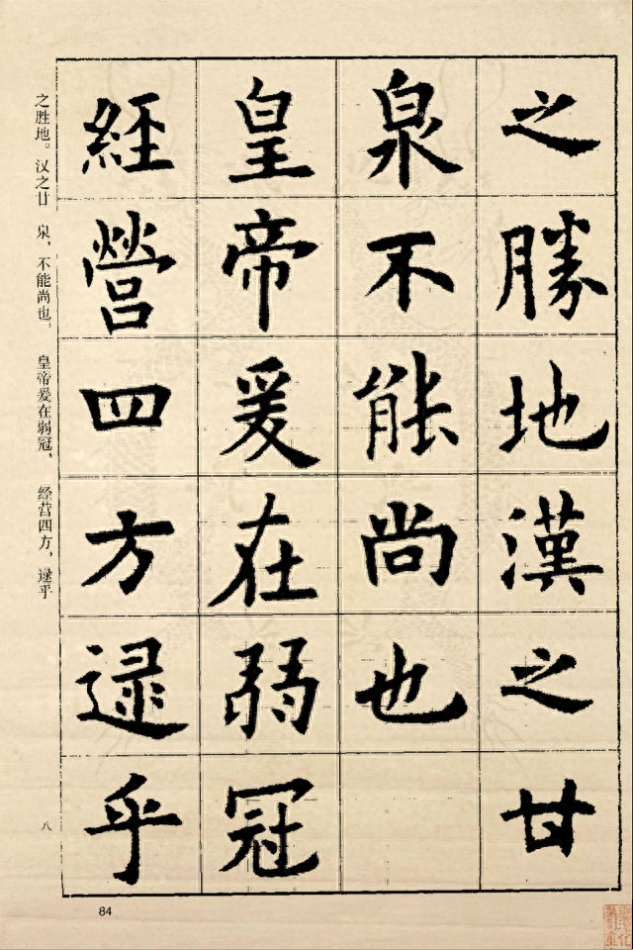 之勝地漢之甘
泉不能尚也
皇帝爰在弱冠
經營四方逯乎
之胜地。汉之甘 泉，不能尚也。 皇帝爰在弱冠， 经营四方，逯乎
八
84